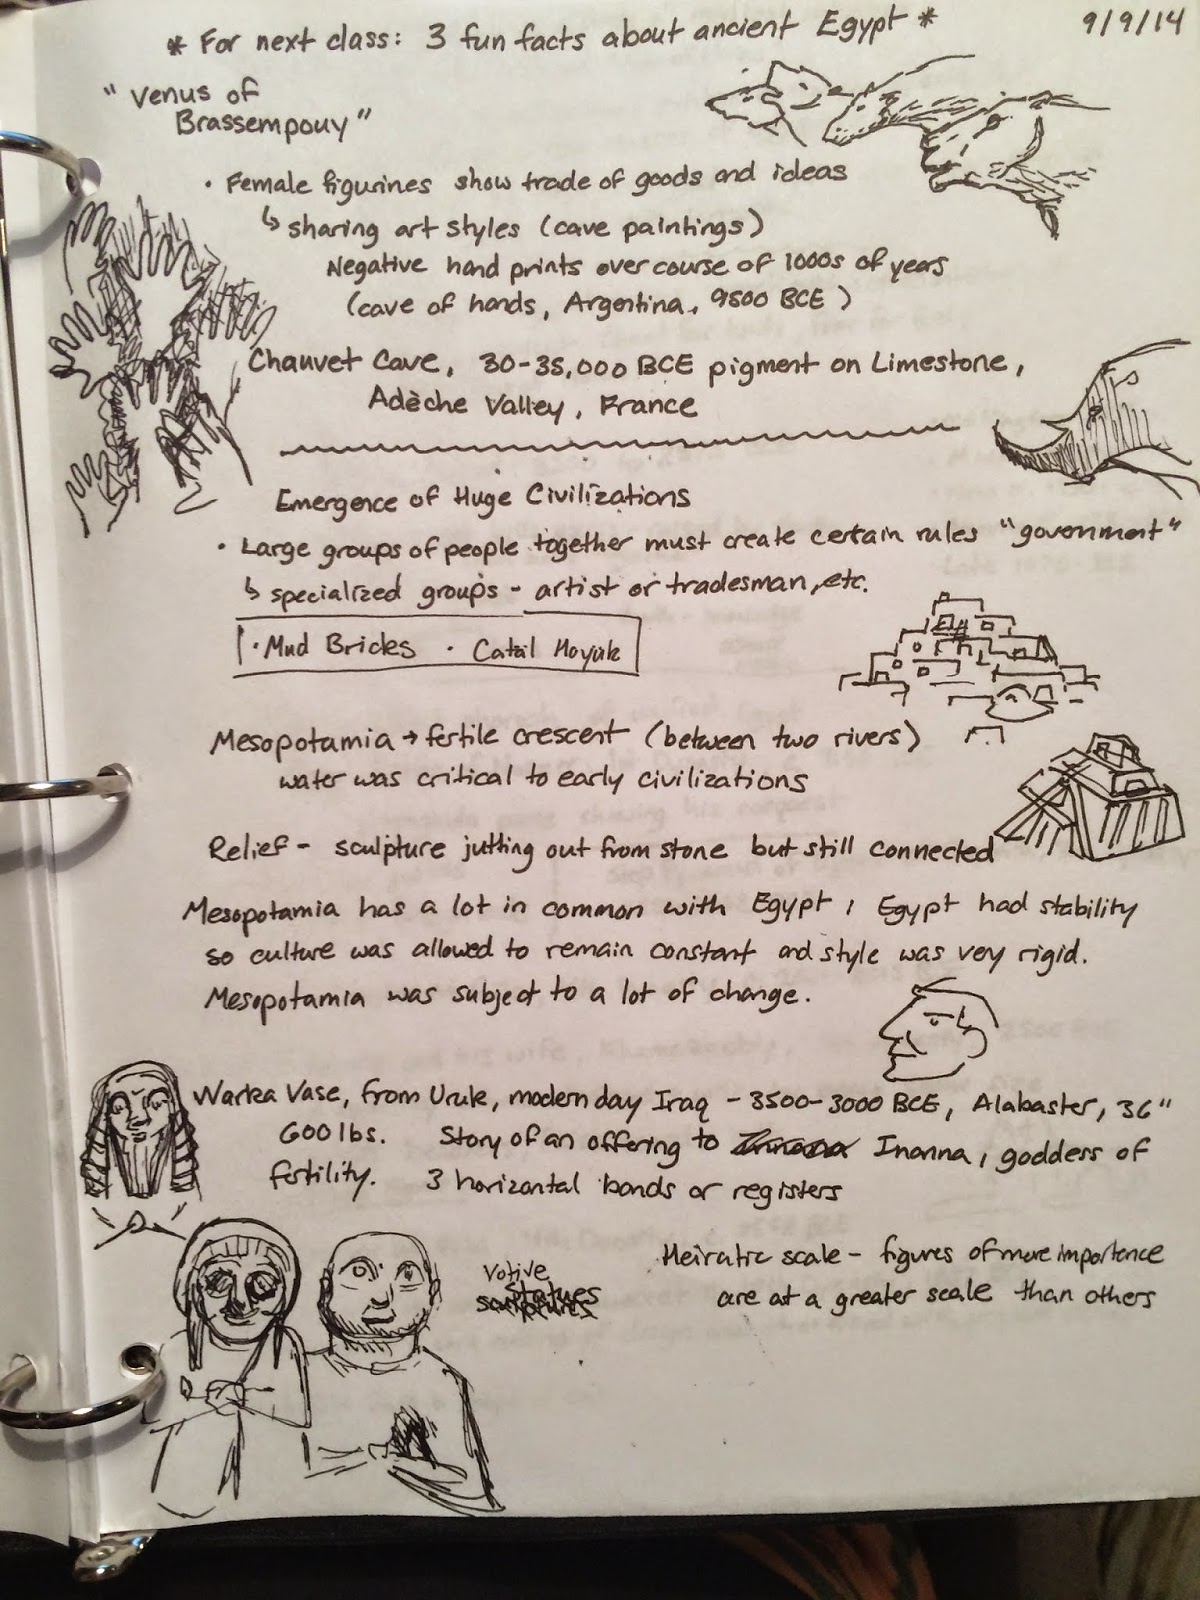 * For next class: 3 fun facts about ancient Egypt *
9/9/14
"Venus of
Brassempouy"
• Female figurines show trade of goods and ideas
↳ sharing art styles (cave paintings)
Negative hand prints over course of 1000s of years
(cave of hands, Argentina, 9500 BCE)
Chauvet Cave, 30-35,000 BCE pigment on Limestone,
Adèche Valley, France
Emergence of Huge Civilizations
• Large groups of people together must create certain rules "government"
↳ specialized groups - artist or tradesman, etc.
• Mud Bricks • Catal Hoyuk
Mesopotamia → fertile crescent (between two rivers)
water was critical to early civilizations
Relief - sculpture jutting out from stone but still connected
Mesopotamia has a lot in common with Egypt, Egypt had stability
so culture was allowed to remain constant and style was very rigid.
Mesopotamia was subject to a lot of change.
Warka Vase, from Uruk, modern day Iraq - 3500-3000 BCE, Alabaster, 36"
600 lbs. Story of an offering to Inanna, goddess of
fertility. 3 horizontal bands or registers
Votive
Statues
Heiratic scale - figures of more importence
are at a greater scale than others